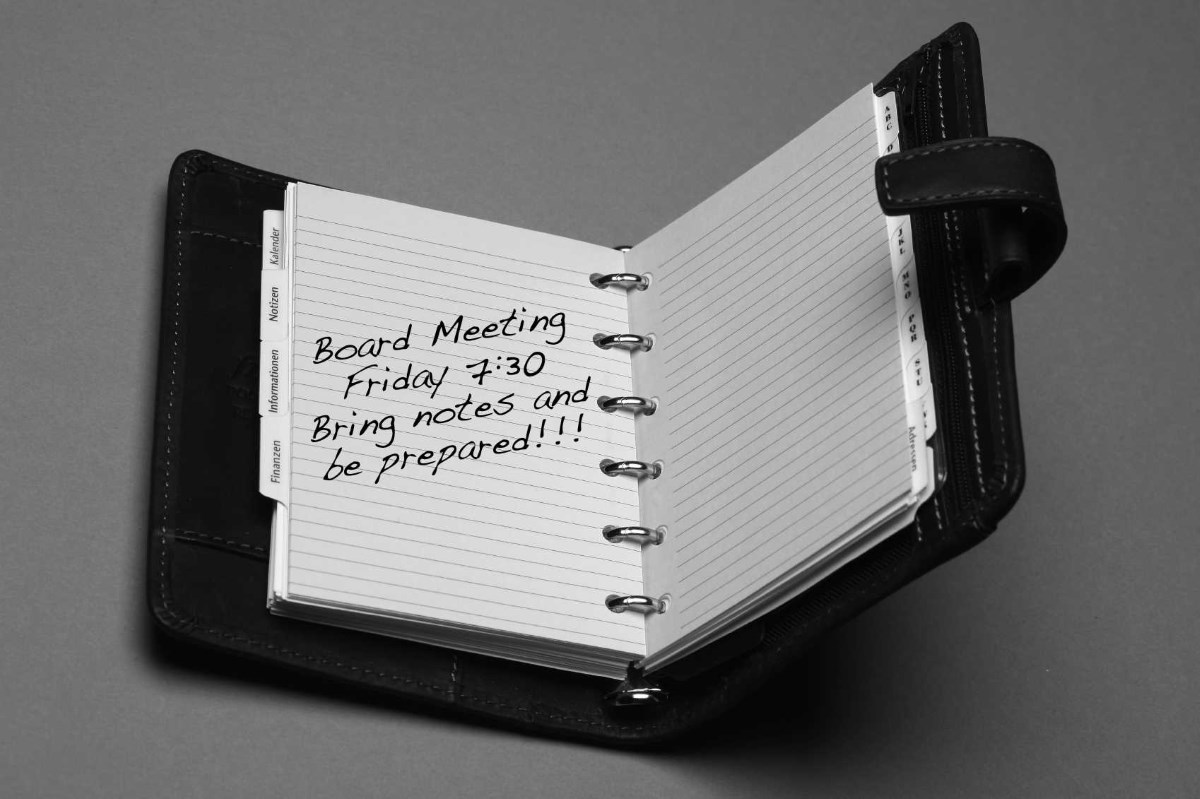 Board Meeting
Friday 7:30
Bring notes and
be prepared!!!
Kalender
Notizen
Informationen
Finanzen
ABC
D
JKL
MNO
PQR
Adressen